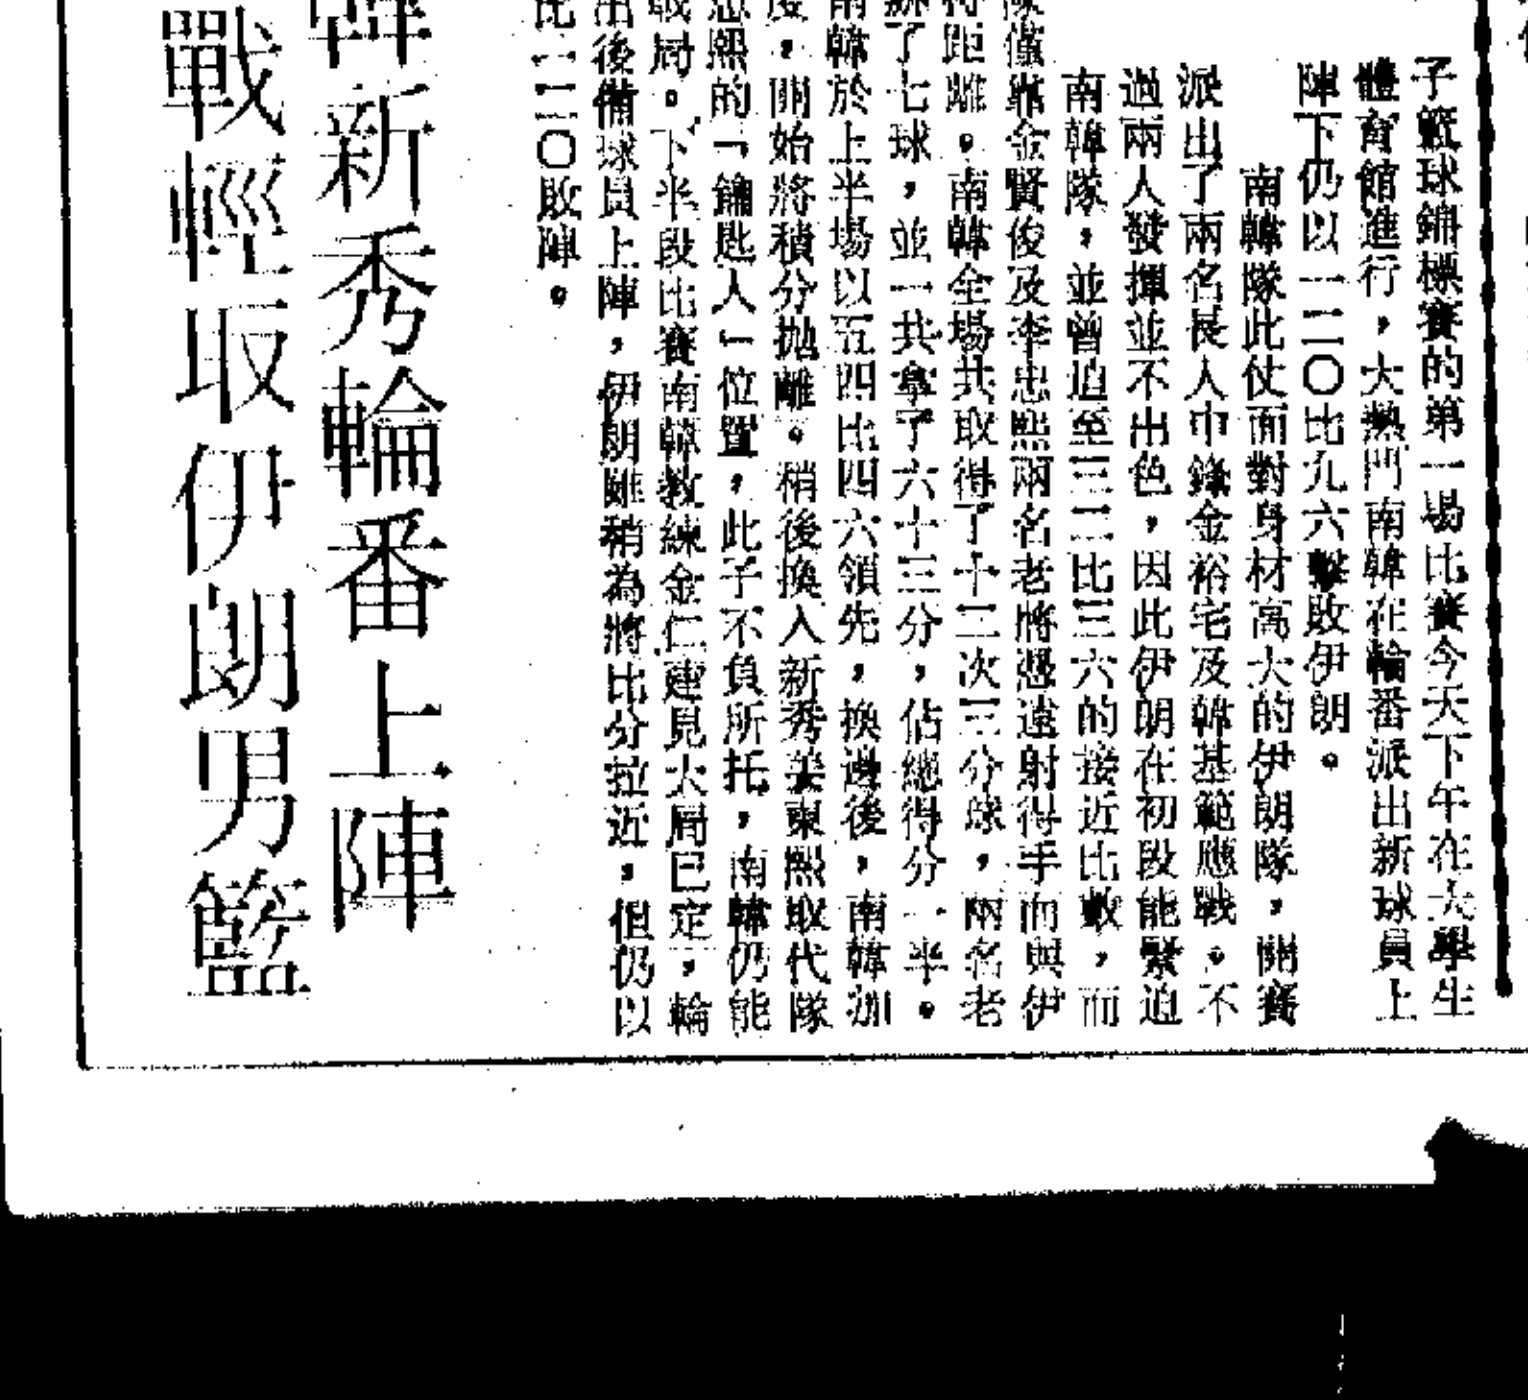 子籃球錦標賽的第一場比賽今天下午在大學生
體育館進行，大熱門南韓在輪番派出新球員上
陣下仍以一二〇比九六擊敗伊朗。
南韓隊此仗面對身材高大的伊朗隊，開賽
派出了兩名長人中鋒金裕宅及韓基範應戰。不
過兩人發揮並不出色，因此伊朗在初段能緊迫
南韓隊，並曾迫至三二比三六的接近比數，而
僅靠金賢俊及李忠熙兩名老將憑遠射得手而與伊
距離。南韓全場共取得了十二次三分球，兩名老
了七球，並一共拿了六十三分，佔總得分一半。
南韓於上半場以五四比四六領先，換邊後，南韓加
，開始將積分拋離。稍後換入新秀姜東熙取代隊
忠熙的「鑰匙人」位置，此子不負所托，南韓仍能
戰局。下半段比賽南韓教練金仁建見大局已定，輪
出後備球員上陣，伊朗雖稍為將比分拉近，但仍以
比一二〇敗陣。
韓新秀輪番上陣
戰輕取伊朗男籃